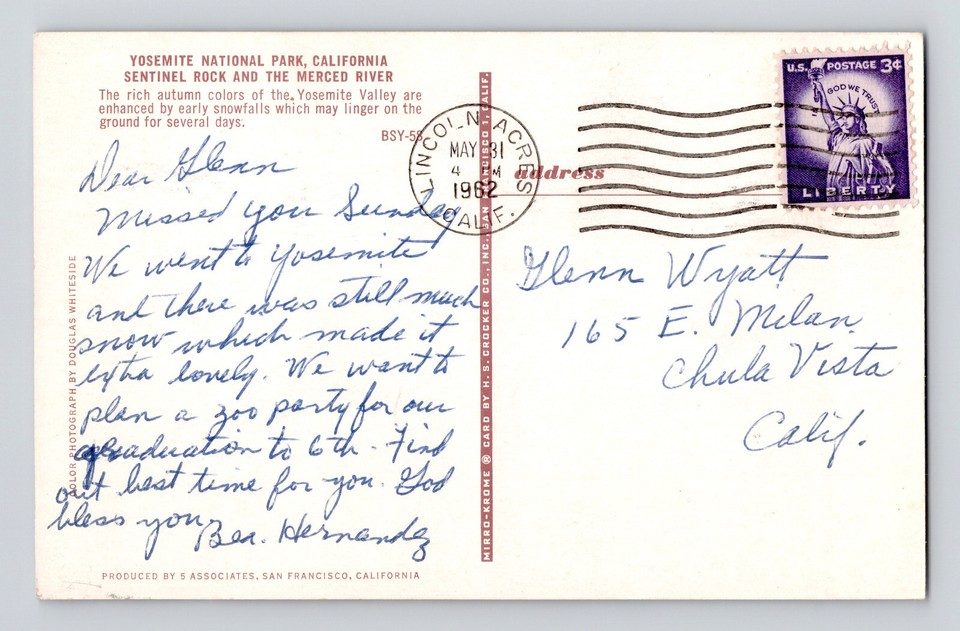 YOSEMITE NATIONAL PARK, CALIFORNIA
SENTINEL ROCK AND THE MERCED RIVER
The rich autumn colors of the Yosemite Valley are
enhanced by early snowfalls which may linger on the
ground for several days.
BSY-58
Dear Glenn
Missed you Sunday
We went to Yosemite
and there was still much
snow which made it
extra lovely. We want to
plan a zoo party for our
graduation to 6th. Find
out best time for you. God
bless you
Bea. Hernandez
PRODUCED BY 5 ASSOCIATES, SAN FRANCISCO, CALIFORNIA
COLOR PHOTOGRAPH BY DOUGLAS WHITESIDE
MIRRO-KROME ® CARD BY H. S. CROCKER CO., INC., SAN FRANCISCO 1, CALIF.
LINCOLN ACRES
MAY 31
4 M
1962
CALIF.
address
U.S. POSTAGE 3¢
IN GOD WE TRUST
LIBERTY
Glenn Wyatt
165 E. Milan
Chula Vista
Calif.